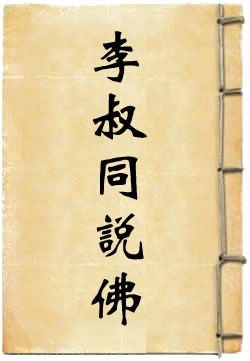 李叔同説佛